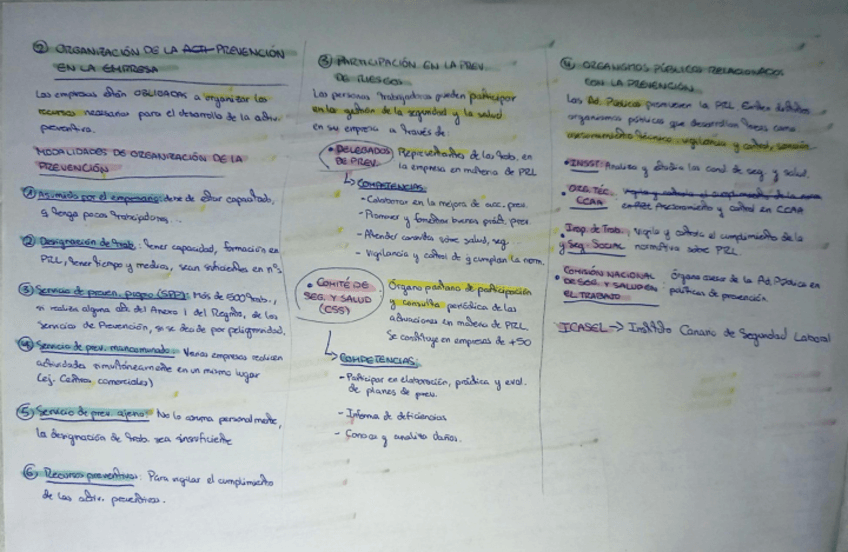 ② ORGANIZACIÓN DE LA PREVENCIÓN
EN LA EMPRESA
Las empresas están OBLIGADAS a organizar los
recursos necesarios para el desarrollo de la activ.
preventiva.
MODALIDADES DE ORGANIZACIÓN DE LA
PREVENCIÓN
① Asumido por el empresario: debe de estar capacitado,
y tenga pocos trabajadores...
② Designación de trab.: tener capacidad, formación en
PRL, tener tiempo y medios, sean suficientes en nº
③ Servicio de preven. propio (SPP): Más de 500 trab.,
si realiza alguna act. del Anexo I del Regto. de los
Servicios de Prevención, si se decide por peligrosidad.
④ Servicio de prev. mancomunado: Varias empresas realicen
actividades simultáneamente en un mismo lugar
(ej. Centros comerciales)
⑤ Servicio de prev. ajeno: No lo asuma personalmente,
la designación de trab. sea insuficiente
⑥ Recursos preventivos: Para vigilar el cumplimiento
de las activ. preventivas.
③ PARTICIPACIÓN EN LA PREV.
DE RIESGOS
Las personas trabajadoras pueden participar
en la gestión de la seguridad y la salud
en su empresa a través de:
• DELEGADOS
DE PREV. Representantes de los trab. en
la empresa en materia de PRL
↳ COMPETENCIAS:
- Colaborar en la mejora de acc. prev.
- Promover y fomentar buenas práct. prev.
- Atender consultas sobre salud, seg.
- Vigilancia y control de q cumplan la norm.
• COMITÉ DE
SEG. Y SALUD
(CSS)
Órgano paritario de participación
y consulta periódica de las
actuaciones en materia de PRL
Se constituye en empresas de +50
↳ COMPETENCIAS:
- Participar en elaboración, práctica y eval.
de planes de prev.
- Informa de deficiencias
- Conocer y analiza daños.
④ ORGANISMOS PÚBLICOS RELACIONADOS
CON LA PREVENCIÓN
Las Ad. Públicas promueven la PRL. Existen distintos
organismos públicos que desarrollan tareas como
asesoramiento técnico, vigilancia y control, sanción
• INSST: Analiza y estudia las cond. de seg. y salud.
• ORG. TÉC.
CCAA Asesoramiento y control en CCAA
• Insp. de Trab. y Seg. Social: vigila y controla el cumplimiento de la
normativa sobre PRL
• COMISIÓN NACIONAL
DE SEG. Y SALUD EN
EL TRABAJO: Órgano asesor de la Ad. Públicas en
políticas de prevención
ICASEL → Instituto Canario de Seguridad Laboral